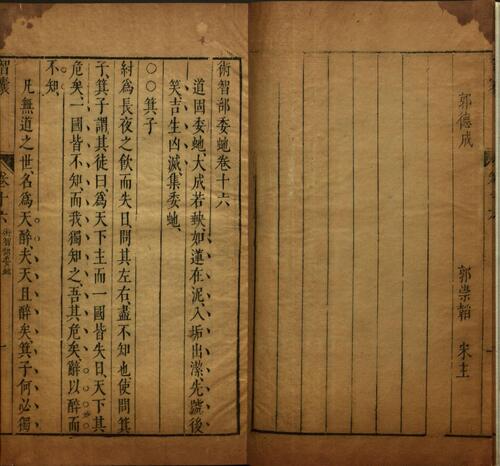 郭德成
郭崇韜 宋主
術智部委虵卷十六
道固委虵大成若缺如蓮在泥入垢出潔先號後
笑吉生凶滅集委虵
○○箕子
紂爲長夜之飲而失日問其左右盡不知也使問箕
子箕子謂其徒曰爲天下主而一國皆失日天下其
危矣一國皆不知而我獨知之吾其危矣辭以醉而
不知
凡無道之世名爲天醉夫天且醉矣箕子何必獨
智囊 卷十六 術智部委虵 一